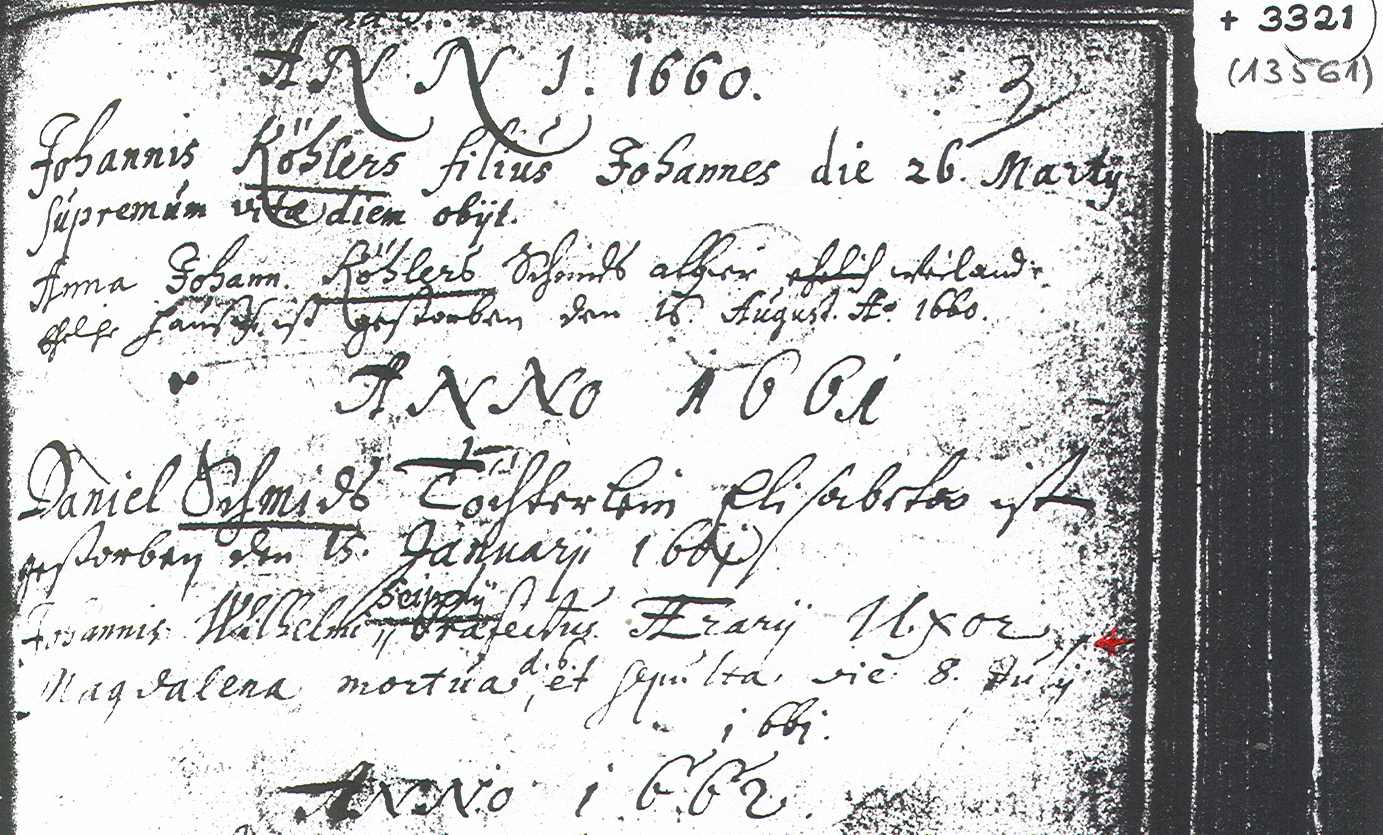 + 3321
(13561)
ANNI. 1660.
3
Johannis Köhlers filiús Johannes die 26. Martij
súpremúm vitæ diem obijt.
Anna Johann. Köhlers Schmids alhier ehelich weiland
haußfr. ist gestorben den 15. August. Ao 1660.
ANNO 1661
Daniel Schmids Töchterlein Elisabetha ist
gestorben den 15. Januarij 1661
Johannis Wilhelmi Præfectus Ærarij Uxor
Magdalena mortua d. 6. et sepulta die 8.
1661.
ANNO 1662.